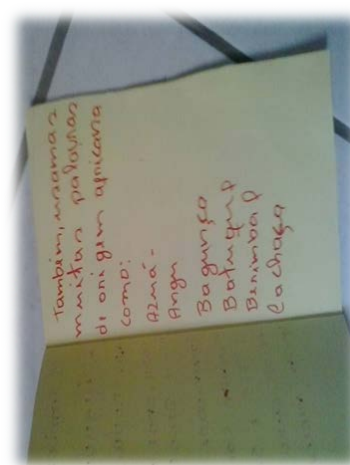 Também, usamos
muitas palavras
di origem africana
como:
Azmá-
Angu
Bagunça
Batuque
Berimbal
Cachaça